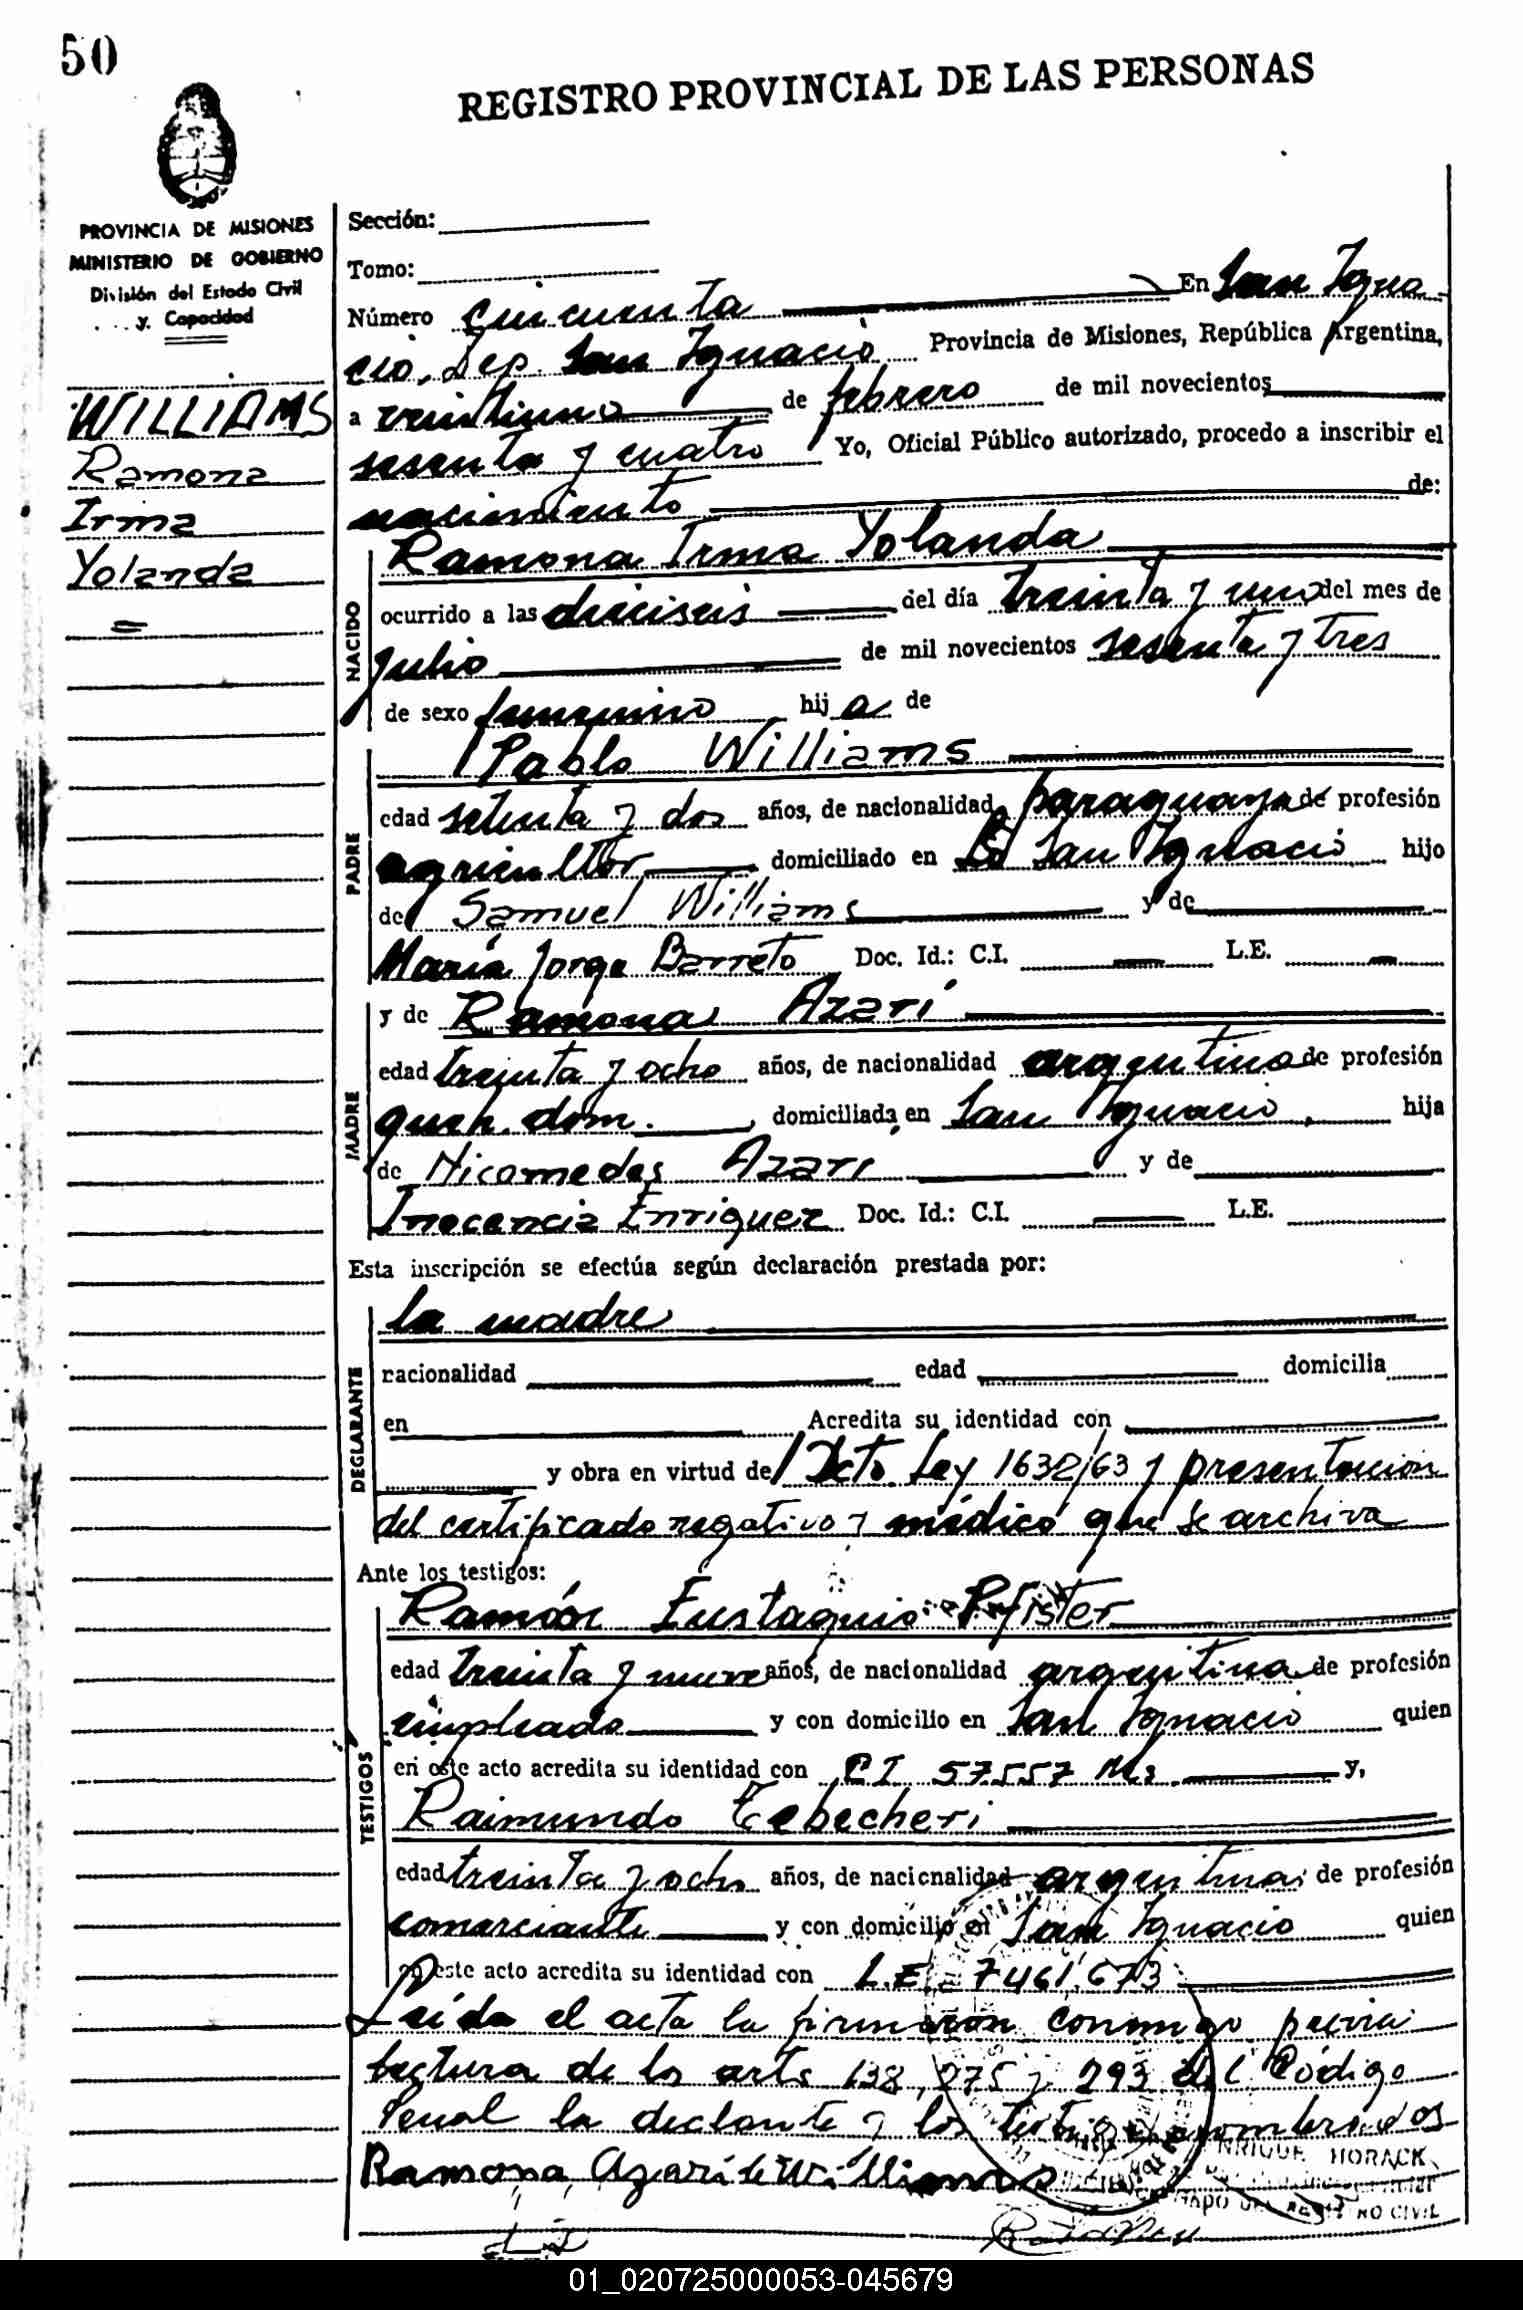 50
REGISTRO PROVINCIAL DE LAS PERSONAS
PROVINCIA DE MISIONES
MINISTERIO DE GOBIERNO
División del Estado Civil
y Capacidad
WILLIAMS
Ramona
Irma
Yolanda
Sección:
Tomo:
Número cincuenta En San Igna
cio, Dep. San Ignacio Provincia de Misiones, República Argentina,
a veintiuno de febrero de mil novecientos
sesenta y cuatro Yo, Oficial Público autorizado, procedo a inscribir el
nacimiento de:
NACIDO
Ramona Irma Yolanda
ocurrido a las dieciseis del día treinta y uno del mes de
julio de mil novecientos sesenta y tres
de sexo femenino hija de
PADRE
Pablo Williams
edad setenta y dos años, de nacionalidad paraguaya de profesión
agricultor domiciliado en San Ignacio hijo
de Samuel Williams y de
María Jorga Barreto Doc. Id.: C.I. — L.E. —
MADRE
y de Ramona Azarí
edad treinta y ocho años, de nacionalidad argentina de profesión
queh. dom. domiciliada en San Ignacio hija
de Nicomedes Azari y de
Inocencia Enriquez Doc. Id.: C.I. — L.E.
Esta inscripción se efectúa según declaración prestada por:
DECLARANTE
la madre
nacionalidad edad domicilia
en Acredita su identidad con
y obra en virtud de Dcto Ley 1632/63 y presentación
del certificado negativo y médico que se archiva
Ante los testigos:
TESTIGOS
Ramón Eustaquio Pfister
edad treinta y nueve años, de nacionalidad argentina de profesión
empleado y con domicilio en San Ignacio quien
en este acto acredita su identidad con CI 57.557 Ms. y,
Raimundo Tebecheri
edad treinta y ocho años, de nacionalidad argentina de profesión
comerciante y con domicilio en San Ignacio quien
en este acto acredita su identidad con L.E. 7461.673
Leída el acta la firmaron conmigo previa
lectura de los arts 138, 275 y 293 del Código
Penal la declante y los testigos nombrados
Ramona Azarí de Williams
ENRIQUE HORACK
REGISTRO CIVIL
01_020725000053-045679